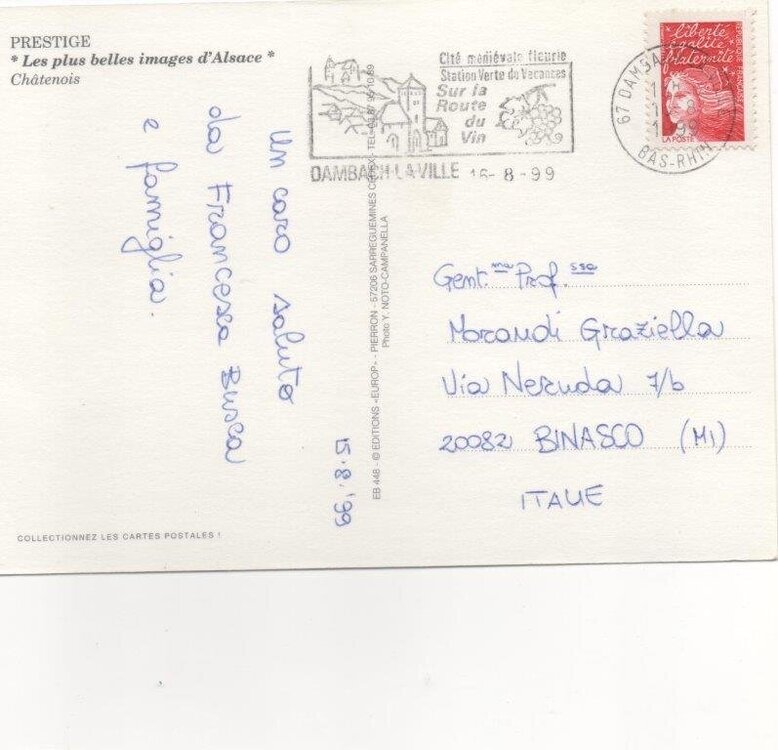 PRESTIGE
* Les plus belles images d'Alsace *
Châtenois
Cité médiévale fleurie
Station Verte de Vacances
Sur la
Route
du
Vin
DAMBACH-LA-VILLE 16-8-99
liberté
égalité
fraternité
RÉPUBLIQUE FRANÇAISE
LA POSTE
67 DAMBACH
BAS-RHIN
un caro saluto
da Francesca Busca
e famiglia.
15.8.'99
EB 448 - © EDITIONS «EUROP» - PIERRON - 57206 SARREGUEMINES CEDEX - TEL.
Photo Y. NOTO-CAMPANELLA
Gent.ma Prof.ssa
Morandi Graziella
Via Neruda 7/b
20082 BINASCO (MI)
ITALIE
COLLECTIONNEZ LES CARTES POSTALES !